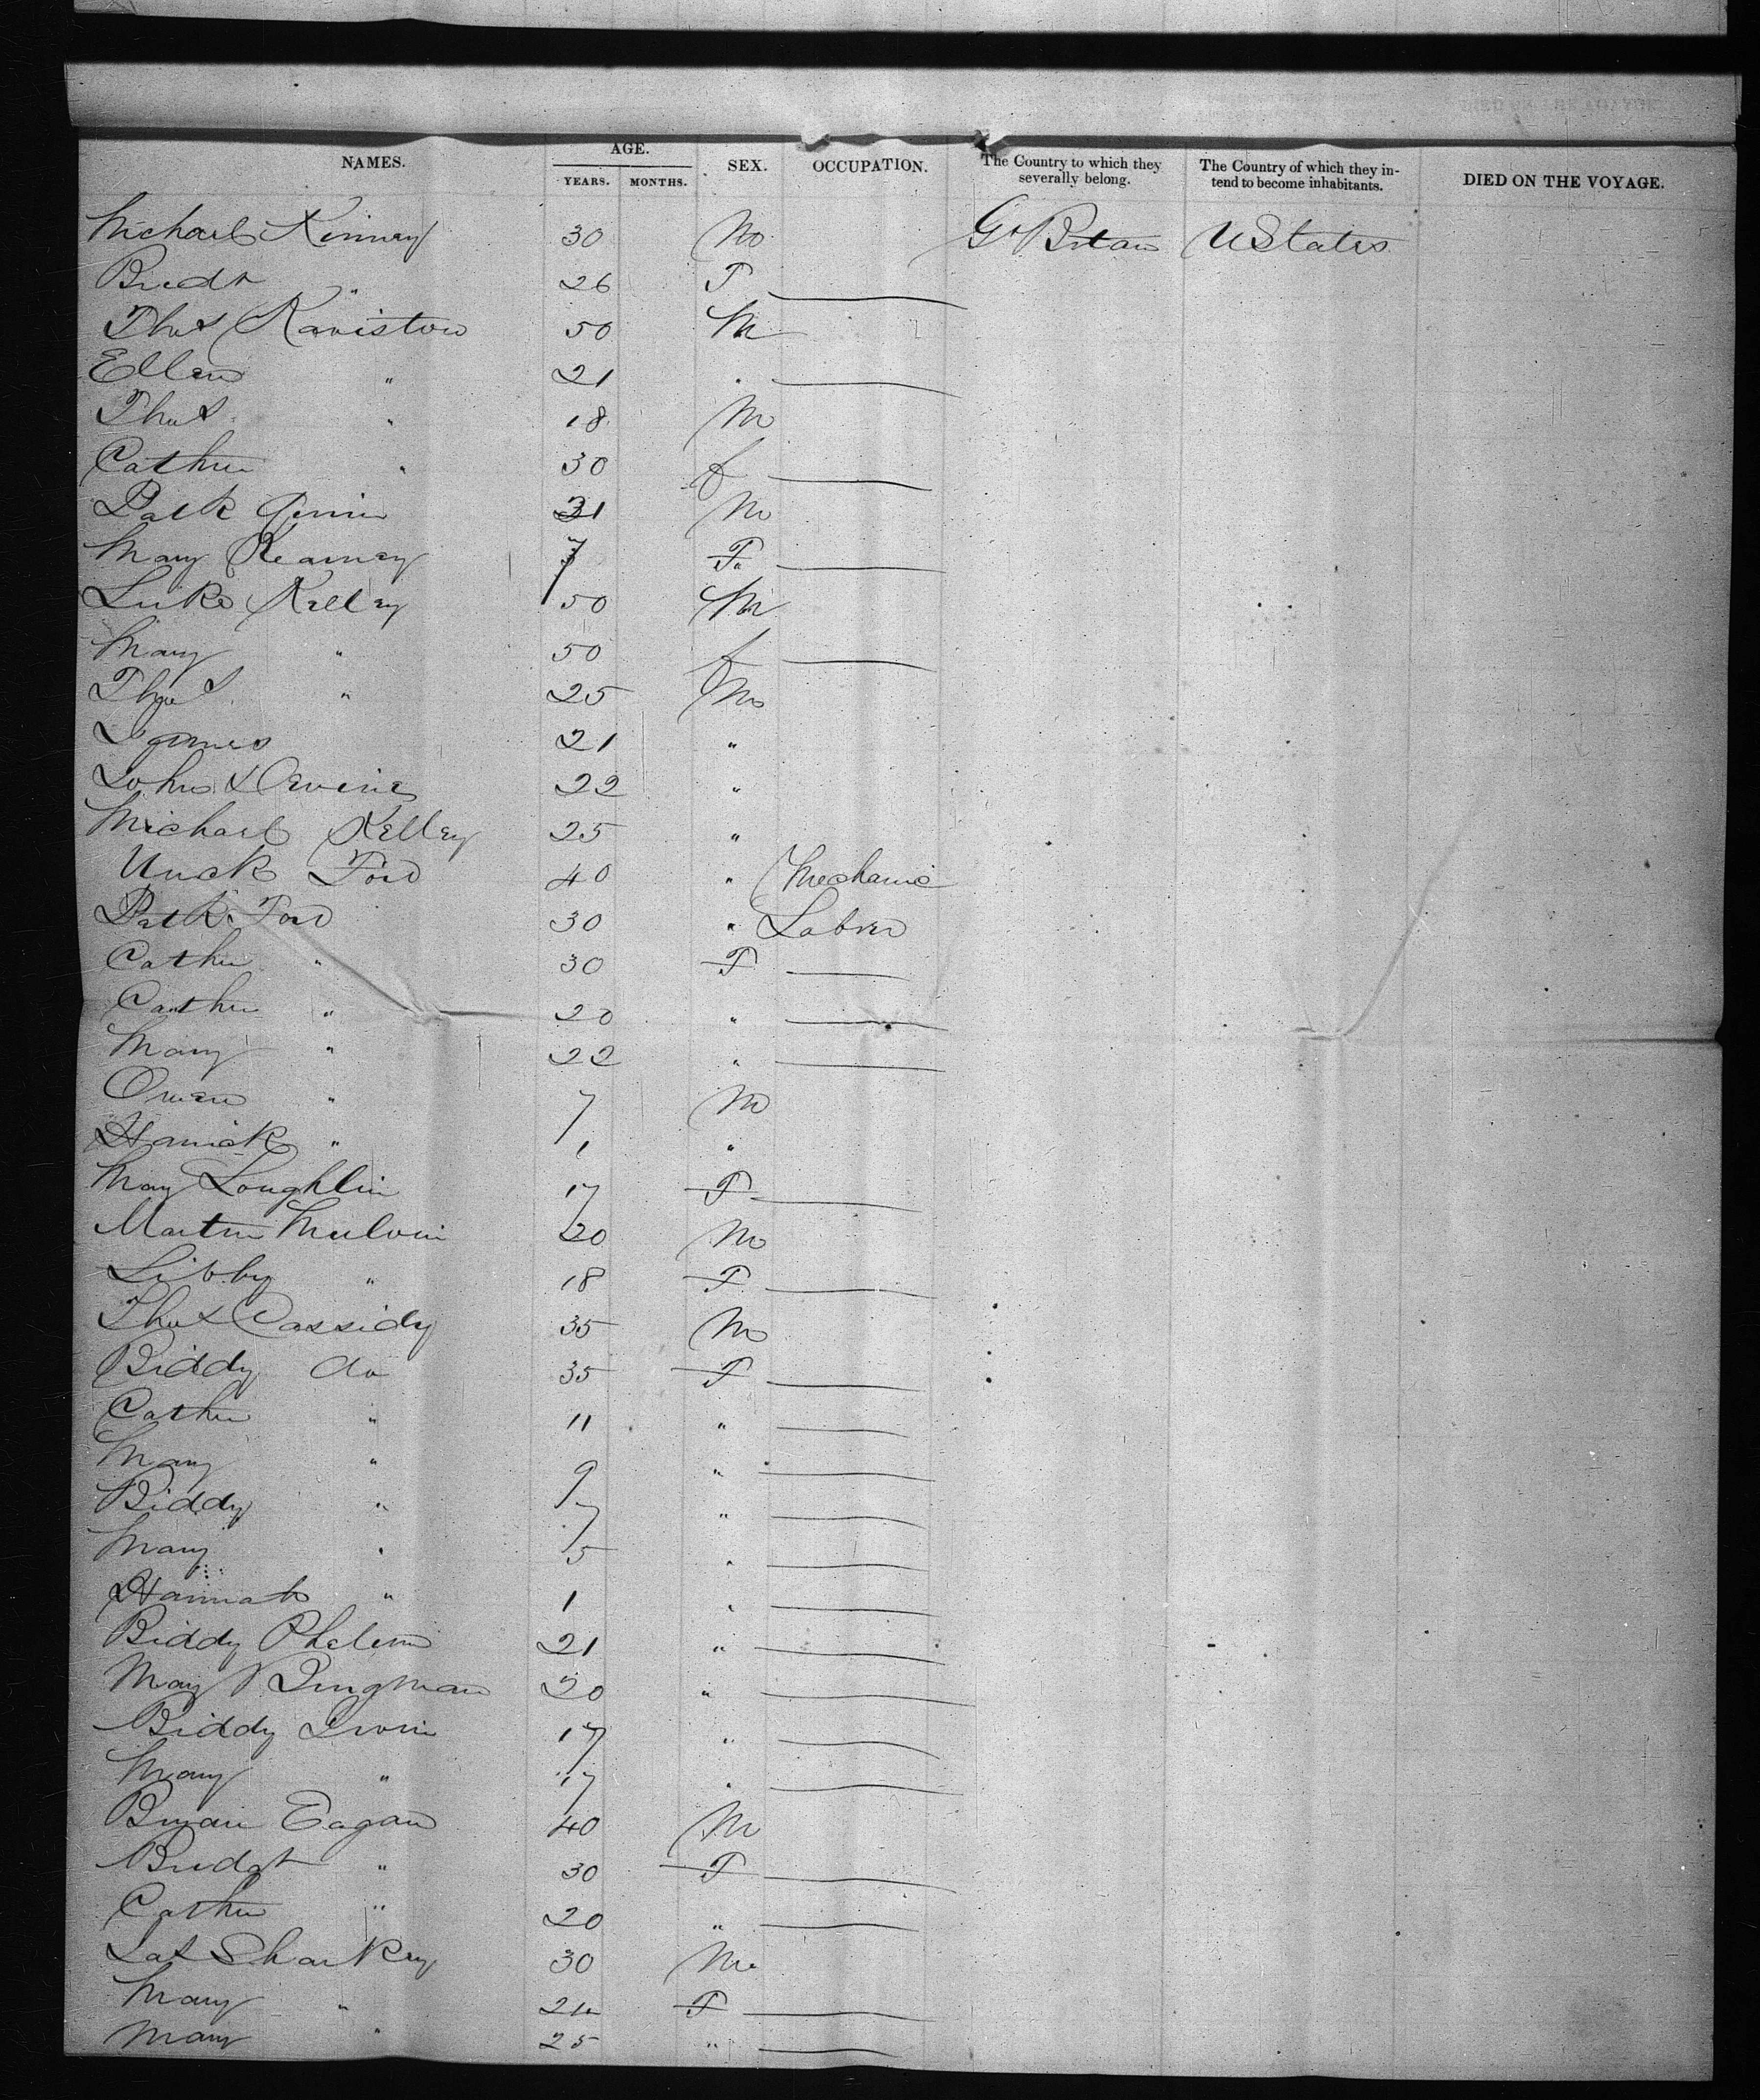 NAMES. AGE. YEARS. MONTHS. SEX. OCCUPATION. The Country to which they severally belong. The Country of which they intend to become inhabitants. DIED ON THE VOYAGE.
Michael Kinney 30 M Gt Britain UStates
Bridt " 26 F
Thos 50 M
Ellen " 21 "
Thos " 18 M
Cathn " 30 f
Patk 31 M
Mary Kearney 7 F
Luke Kelley 50 M
Mary " 50 f
Thos " 25 M
James 21 "
John 22 "
Michael Kelley 25 "
Ford 40 " Mechanic
Patk Ford 30 " Labrer
Cathn " 30 F
Cathn " 20 "
Mary " 22 "
Owen " 7 M
" 1 "
Mary Loughlin 17 F
Martin Mulvin 20 M
Libby " 18 F
Thos Cassidy 35 M
Biddy do 35 F
Cathn " 11 "
Mary " 9 "
Biddy " 7 "
Mary " 5 "
Hannah " 1 "
Biddy Phelem 21 "
Mary 20 "
Biddy Irvin 17 "
Mary " 17 "
Bryan Eagan 40 M
Bridgt " 30 F
Cathn " 20 "
Sharkey 30 M
Mary " F
Mary " 25 "